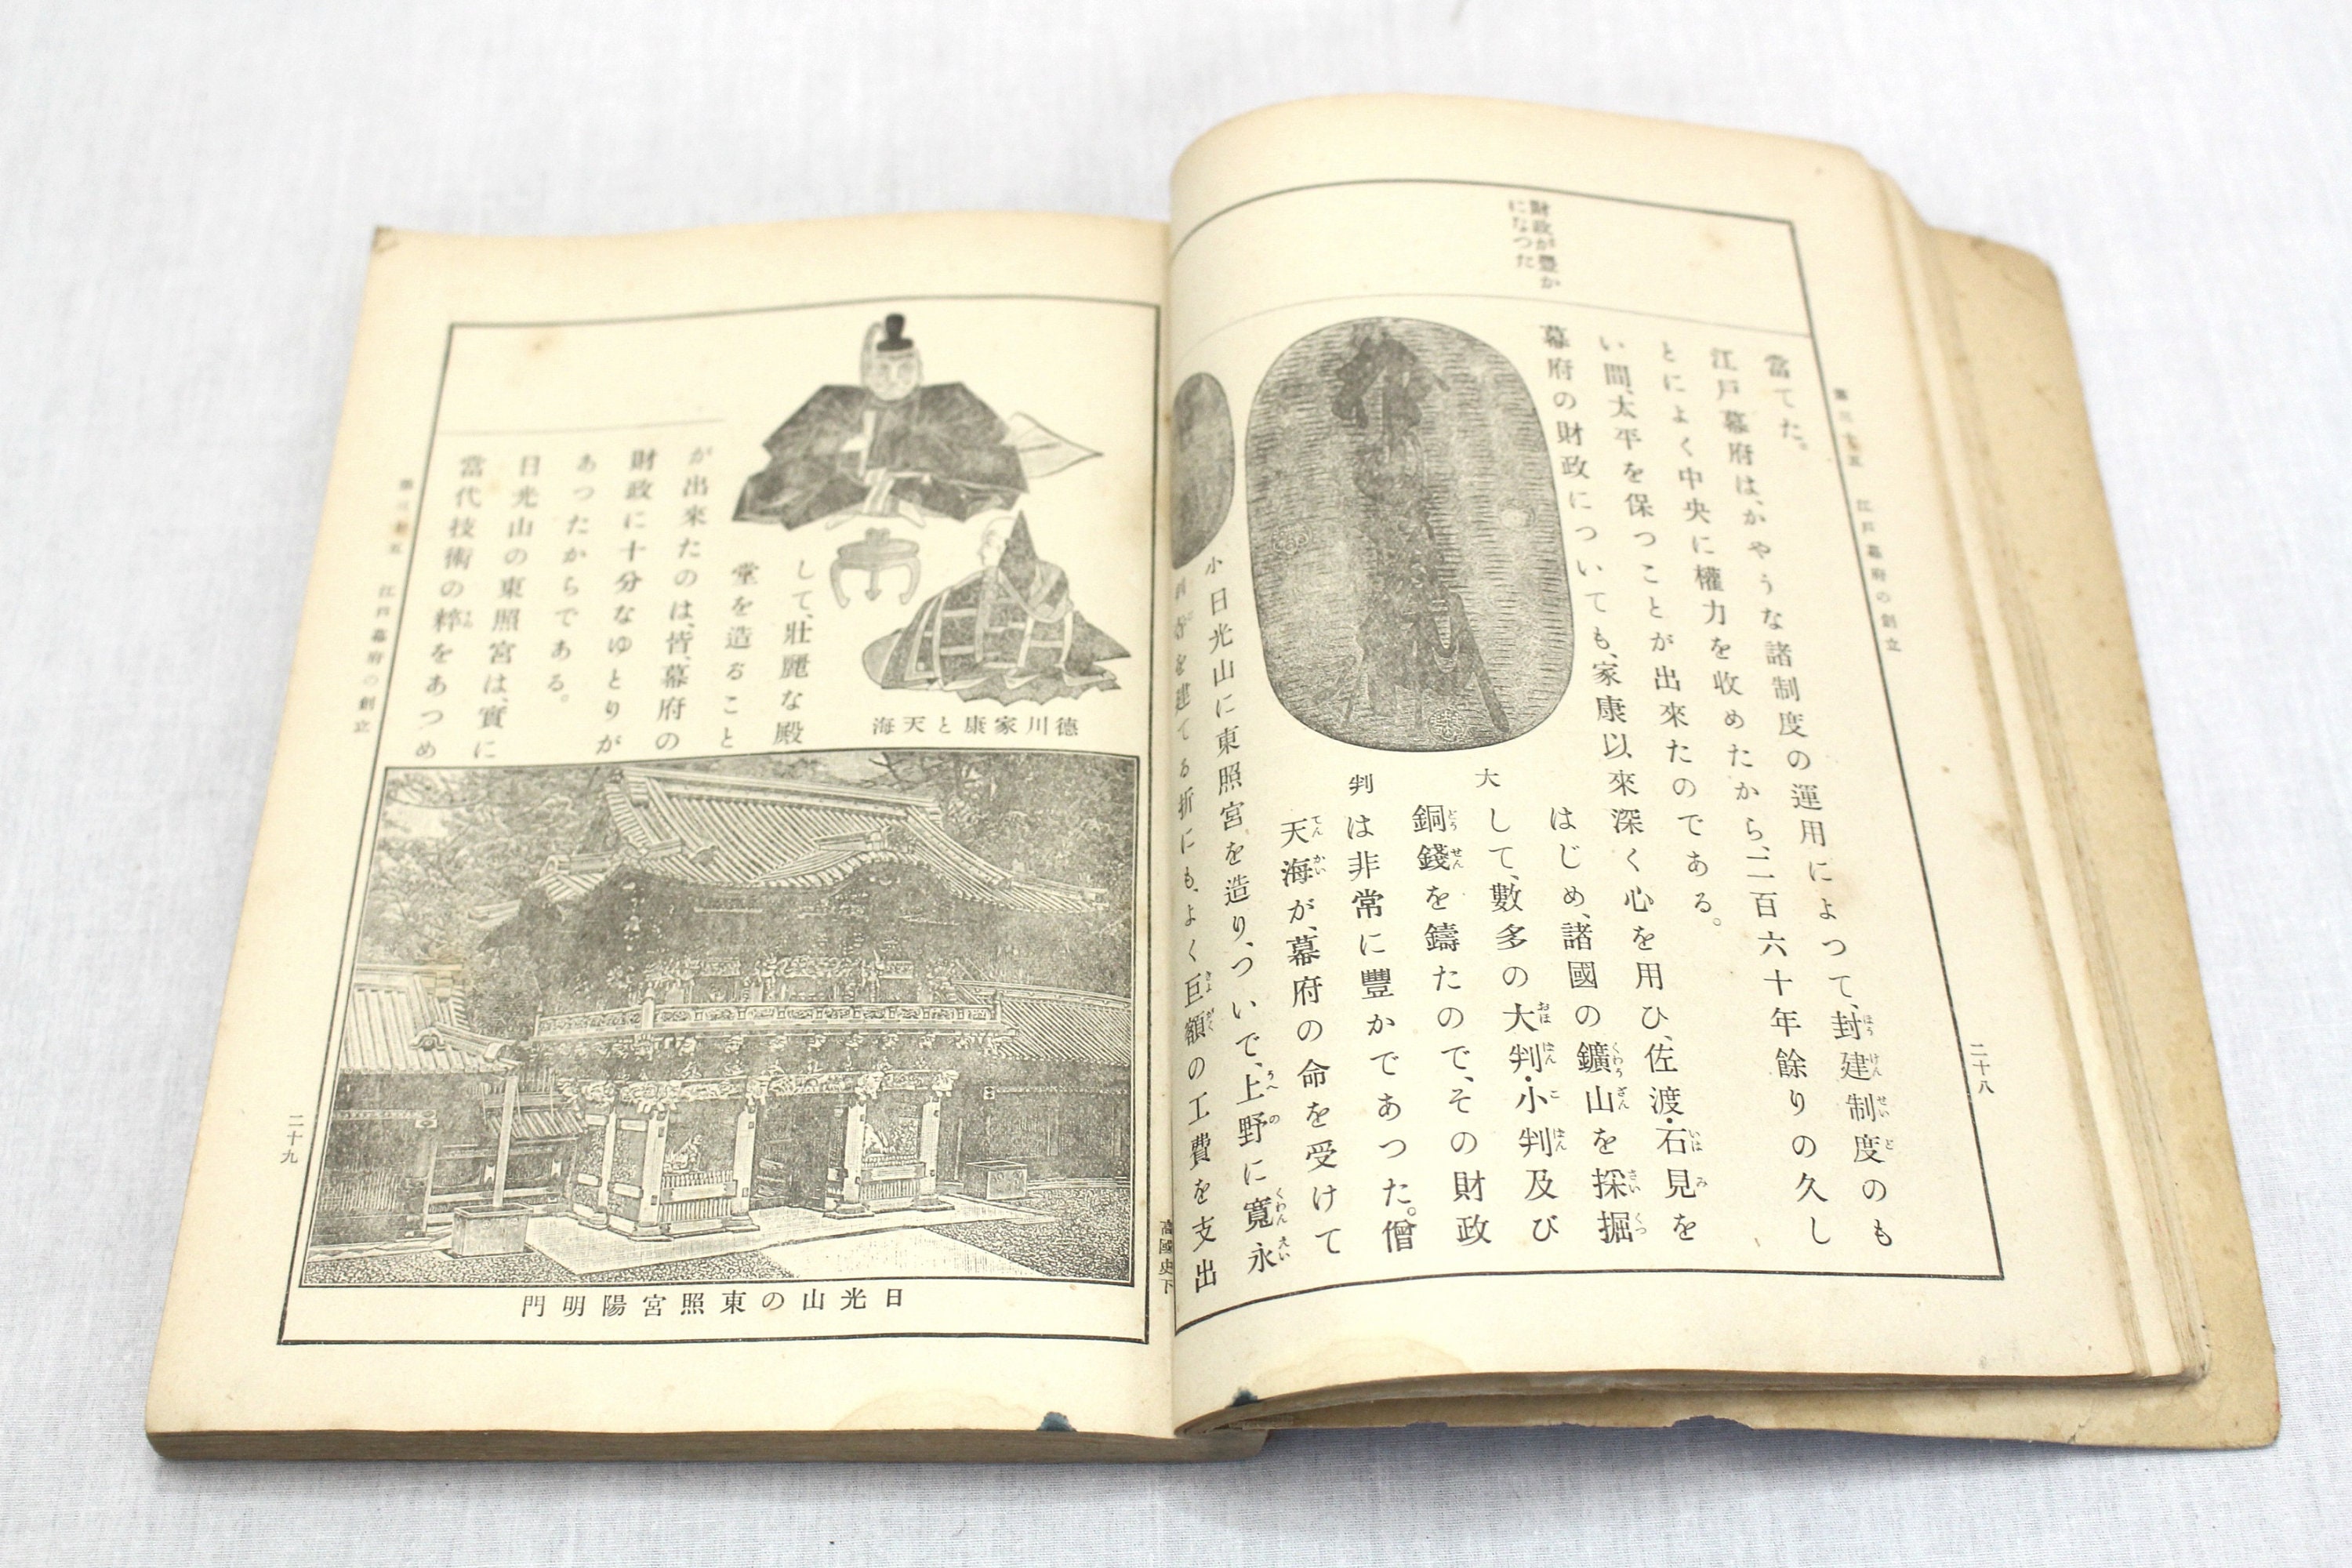 第三十五　江戸幕府の創立
二十八
財政が豐か
になつた
當てた。
江戸幕府は、かやうな諸制度の運用によつて、封建制度のも
とによく中央に權力を收めたから、二百六十年餘りの久し
い間、太平を保つことが出來たのである。
幕府の財政についても、家康以來深く心を用ひ、佐渡・石見を
はじめ、諸國の鑛山を採掘
して、數多の大判・小判及び
銅錢を鑄たので、その財政
は非常に豐かであつた。僧
天海が、幕府の命を受けて
大判
小
日光山に東照宮を造り、ついで、上野に寬永
を建てる折にも、よく巨額の工費を支出
高國史下
德川家康と天海
して、壯麗な殿
堂を造ること
が出來たのは、皆、幕府の
財政に十分なゆとりが
あつたからである。
日光山の東照宮は、實に
當代技術の粹をあつめ
日光山の東照宮陽明門
第三十五　江戸幕府の創立
二十九